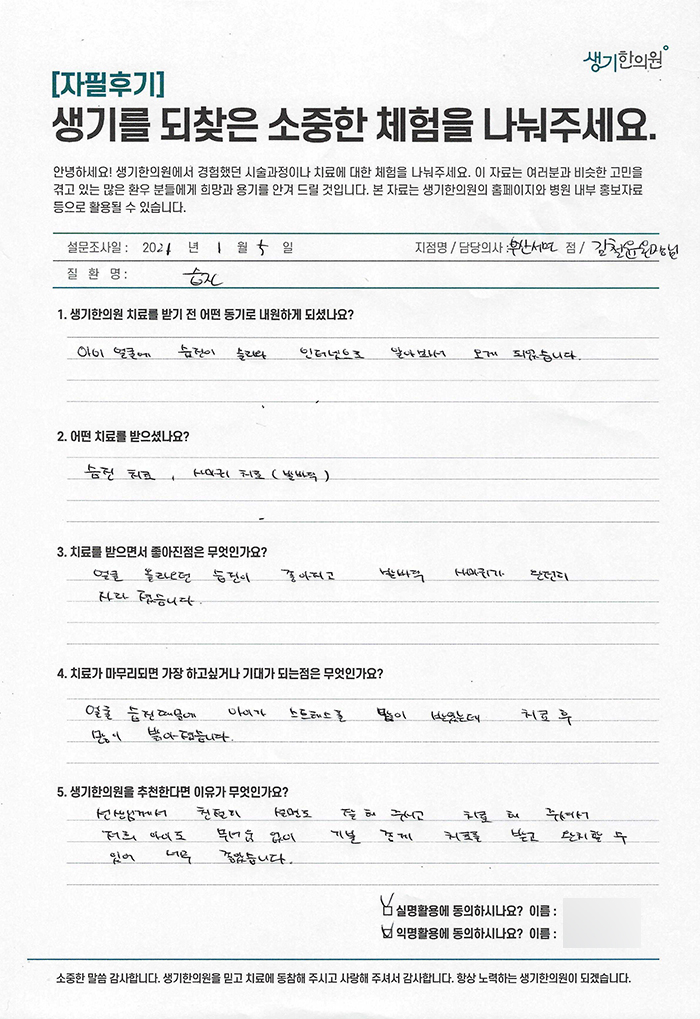 생기한의원
[자필후기]
생기를 되찾은 소중한 체험을 나눠주세요.
안녕하세요! 생기한의원에서 경험했던 시술과정이나 치료에 대한 체험을 나눠주세요. 이 자료는 여러분과 비슷한 고민을
겪고 있는 많은 환우 분들에게 희망과 용기를 안겨 드릴 것입니다. 본 자료는 생기한의원의 홈페이지와 병원 내부 홍보자료
등으로 활용될 수 있습니다.
설문조사일 : 2021 년 1 월 5 일 지점명 / 담당의사 : 부산서면 점 / 김철윤원장님
질 환 명 : 습진
1. 생기한의원 치료를 받기 전 어떤 동기로 내원하게 되셨나요?
아이 얼굴에 습진이 올라와 인터넷으로 알아보서 오게 되었습니다.
2. 어떤 치료를 받으셨나요?
습진 치료, 사마귀 치료 (발바닥)
3. 치료를 받으면서 좋아진점은 무엇인가요?
얼굴 올라오던 습진이 좋아지고 발바닥 사마귀가 완전히
사라 졌습니다.
4. 치료가 마무리되면 가장 하고싶거나 기대가 되는점은 무엇인가요?
얼굴 습진때문에 아이가 스트레스를 많이 받았는데 치료 후
많이 밝아졌습니다.
5. 생기한의원을 추천한다면 이유가 무엇인가요?
선생님께서 친절히 설명도 잘 해 주시고 치료 해 주셔서
저희 아이도 무서움 없이 기분 좋게 치료를 받고 완치할 수
있어 너무 좋았습니다.
실명활용에 동의하시나요? 이름 :
익명활용에 동의하시나요? 이름 :
소중한 말씀 감사합니다. 생기한의원을 믿고 치료에 동참해 주시고 사랑해 주셔서 감사합니다. 항상 노력하는 생기한의원이 되겠습니다.